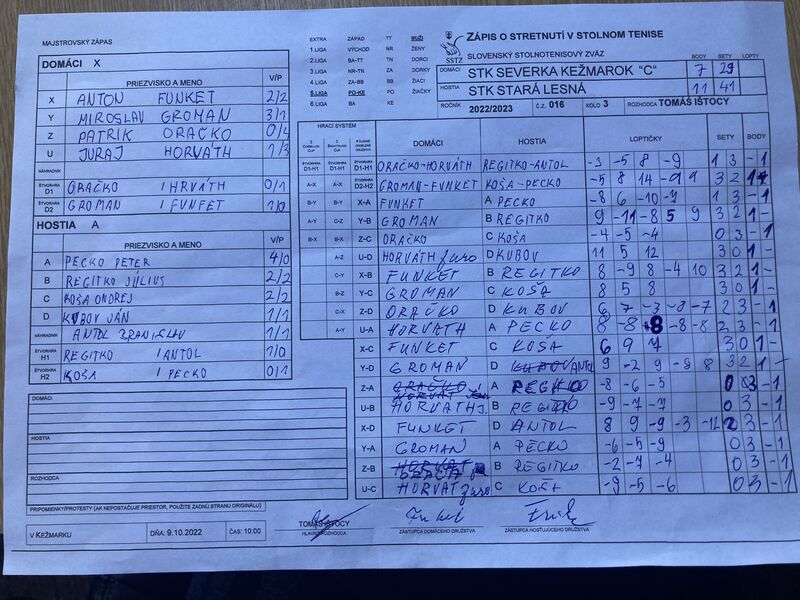 MAJSTROVSKÝ ZÁPAS
DOMÁCI X
PRIEZVISKO A MENO V/P
X ANTON FUNKET 2/2
Y MIROSLAV GROMAN 3/1
Z PATRIK ORAČKO 0/4
U JURAJ HORVÁTH 1/3
NÁHRADNÍK
ŠTVORHRA D1 ORAČKO / HRVÁTH 0/1
ŠTVORHRA D2 GROMAN / FUNFET 1/0
HOSTIA A
PRIEZVISKO A MENO V/P
A PECKO PETER 4/0
B REGITKO JÚLIUS 2/2
C KOŠA ONDREJ 2/2
D KUBOV JÁN 1/1
NÁHRADNÍK ANTOL BRANISLAV 1/1
ŠTVORHRA H1 REGITKO / ANTOL 1/0
ŠTVORHRA H2 KOŠA / PECKO 0/1
DOMÁCI
HOSTIA
ROZHODCA
PRIPOMIENKY/PROTESTY (AK NEPOSTAČUJE PRIESTOR, POUŽITE ZADNÚ STRANU ORIGINÁLU)
V KEŽMARKU DŇA: 9.10.2022 ČAS: 10:00
EXTRA ZÁPAD TT MUŽI
1.LIGA VÝCHOD NR ŽENY
2.LIGA BA-TT TN DORCI
3.LIGA NR-TN ZA DORKY
4.LIGA ZA-BB BB ŽIACI
5.LIGA PO-KE PO ŽIAČKY
6.LIGA BA KE
SSTZ
ZÁPIS O STRETNUTÍ V STOLNOM TENISE
SLOVENSKÝ STOLNOTENISOVÝ ZVÄZ
BODY SETY LOPTY
DOMÁCI STK SEVERKA KEŽMAROK "C" 7 29
HOSTIA STK STARÁ LESNÁ 11 41
ROČNÍK 2022/2023 Č.Z. 016 KOLO 3 ROZHODCA TOMÁŠ IŠTOCY
HRACÍ SYSTÉM DOMÁCI HOSTIA LOPTIČKY SETY BODY
D1-H1 ORAČKO-HORVÁTH REGITKO-ANTOL -3 -5 8 -9 1 3 -1
D2-H2 GROMAN-FUNKET KOŠA-PECKO -5 8 14 9 3 2 1
X-A FUNKET A PECKO -8 6 -10 -7 1 3 -1
Y-B GROMAN B REGITKO 9 -11 -8 5 9 3 2 1 -
Z-C ORAČKO C KOŠA -4 -5 -4 0 3 -1
U-D HORVÁTH Juro D KUBOV 11 5 12 3 0 1 -
X-B FUNKET B REGITKO 8 -9 8 -4 10 3 2 1 -
Y-C GROMAN C KOŠA 8 5 8 3 0 1 -
Z-D ORAČKO D KUBOV 6 7 -3 -8 -7 2 3 -1
U-A HORVATH A PECKO 8 -8 8 -8 -8 2 3 -1
X-C FUNKET C KOŠA 6 9 7 3 0 1 -
Y-D GROMAN D ANTOL 9 -2 9 -8 8 3 2 1 -
Z-A A -8 -6 -5 0 3 -1
U-B HORVATH J. B REGITKO -9 -7 -7 0 3 -1
X-D FUNKET D ANTOL 8 9 -9 -3 -12 2 3 -1
Y-A GROMAN A PECKO -6 -5 -9 0 3 -1
Z-B B REGITKO -2 -7 -4 0 3 -1
U-C HORVAT Juro C KOŠA -9 -5 -6 0 3 -1
TOMÁŠ IŠTOCY
HLAVNÝ ROZHODCA
ZÁSTUPCA DOMÁCEHO DRUŽSTVA
ZÁSTUPCA HOSŤUJÚCEHO DRUŽSTVA